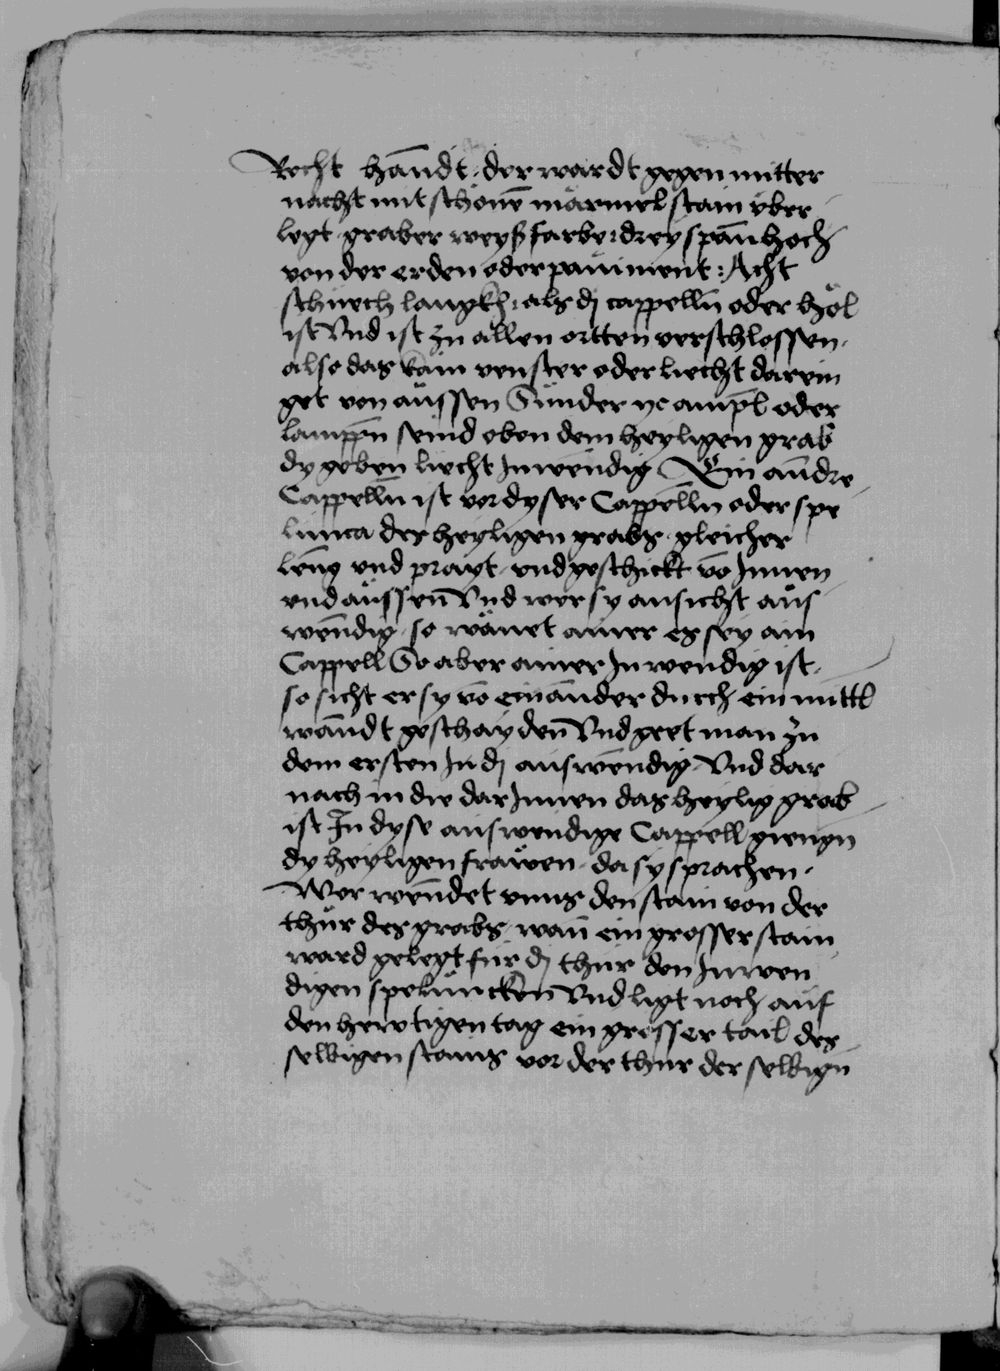 Recht hanndt. der wardt gegen mitter
nacht mit schönē märmel stain über
legt graber weyß farbe: drey spān hoch
von der erden oder paüiment: Acht
schuech langkh: als dj cappellñ oder höl
ist Vnd ist zu allen ortten verschlossen.
also das kain venster oder liecht darein
get von aüssen Sünder xc ampl oder
lamppñ seind oben dem heyligen grab
dy geben liecht Inwendig Ein anndre
Cappellñ ist vor dyser Cappellñ oder spe
lunca des heyligen grabs. gleicher
leng vnd prayt. vnd geschickt vō Innen
vnd aüssen Vnd wer sy ansicht aüs
wendig. so wänet ainer es sey ain
Cappell So aber ainer Inwendig ist.
so sicht er sy vō einander durch ein mittl
wanndt geschayden Vnd geet man zu
dem ersten In dj auswendig. Vnd dar
nach in die dar Innen das heylig grab
ist In dyse auswendige Cappell giengn
dy heyligen frawen. da sy sprachen.
Wer wendet vnns den stain von der
thür des grabs. wañ ein grosser stain
ward gelegt für dj thür den Inwen
digen speluncken Vnd ligt noch auf
den hewtigen tag ein grosser tail des
selbigen stains vor der thur der selbign